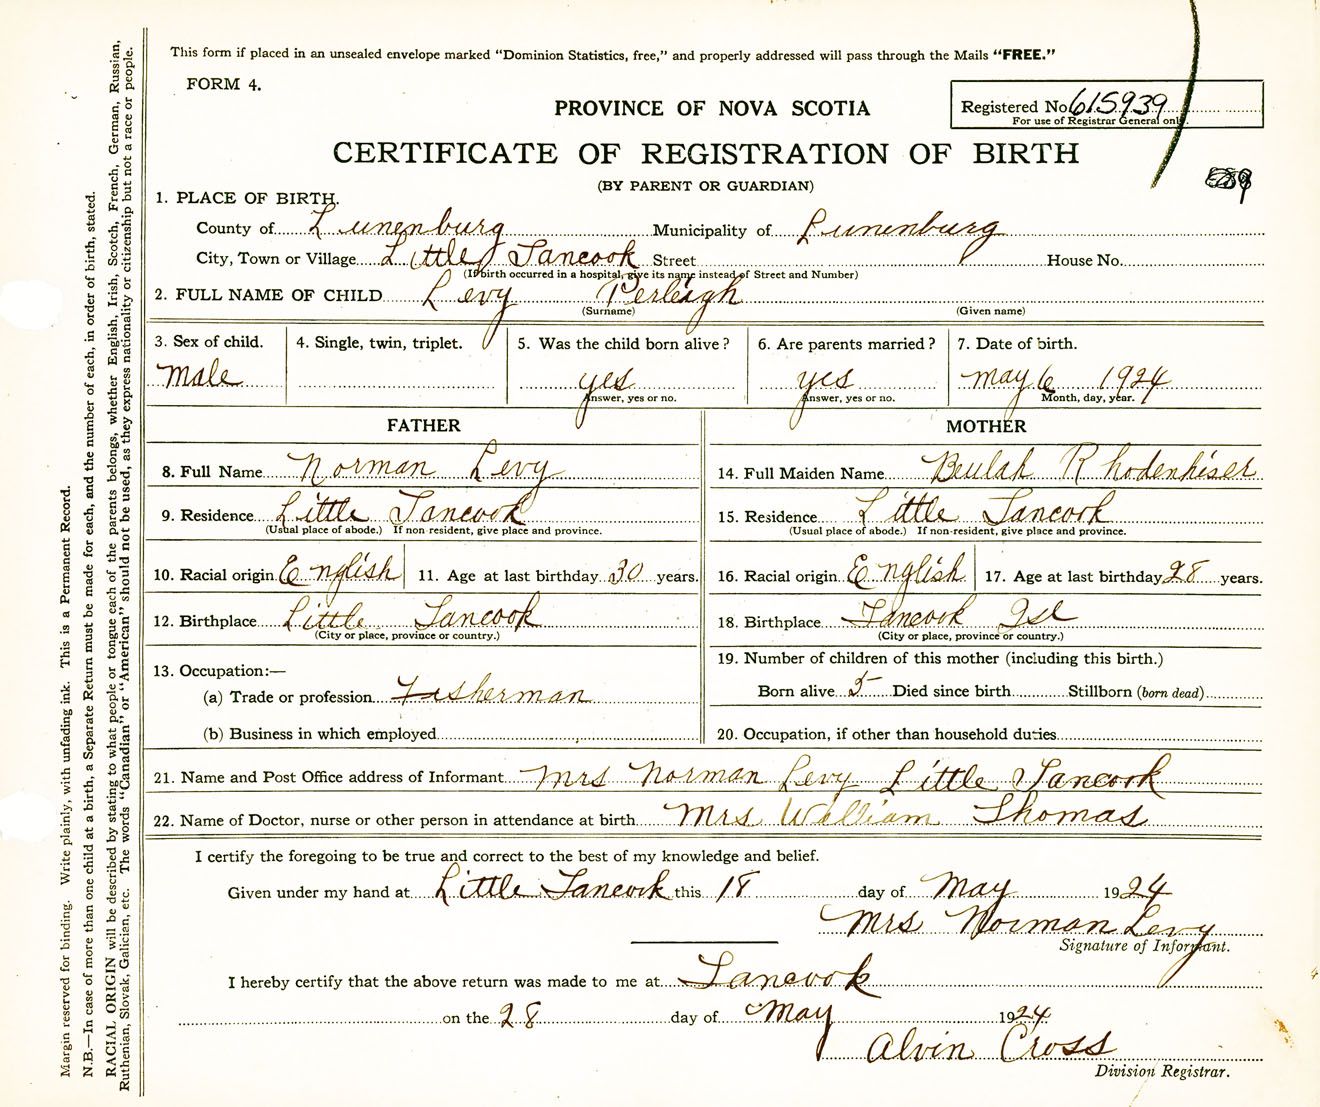 This form if placed in an unsealed envelope marked "Dominion Statistics, free," and properly addressed will pass through the Mails "FREE."
FORM 4.
PROVINCE OF NOVA SCOTIA
Registered No. 615939
For use of Registrar General only.
CERTIFICATE OF REGISTRATION OF BIRTH
(BY PARENT OR GUARDIAN)
1. PLACE OF BIRTH.
County of Lunenburg Municipality of Lunenburg
City, Town or Village Little Tancook Street House No.
(If birth occurred in a hospital, give its name instead of Street and Number)
2. FULL NAME OF CHILD Levy Perleigh
(Surname) (Given name)
3. Sex of child. 4. Single, twin, triplet. 5. Was the child born alive? 6. Are parents married? 7. Date of birth.
Male yes yes May 6 1924
Answer, yes or no. Answer, yes or no. Month, day, year.
FATHER MOTHER
8. Full Name Norman Levy 14. Full Maiden Name Beulah Rhodenhiser
9. Residence Little Tancook 15. Residence Little Tancook
(Usual place of abode.) If non-resident, give place and province. (Usual place of abode.) If non-resident, give place and province.
10. Racial origin English 11. Age at last birthday 30 years. 16. Racial origin English 17. Age at last birthday 28 years.
12. Birthplace Little Tancook 18. Birthplace Tancook Isl
(City or place, province or country.) (City or place, province or country.)
13. Occupation:— 19. Number of children of this mother (including this birth.)
(a) Trade or profession Fisherman Born alive 5 Died since birth Stillborn (born dead)
(b) Business in which employed 20. Occupation, if other than household duties
21. Name and Post Office address of Informant Mrs Norman Levy Little Tancook
22. Name of Doctor, nurse or other person in attendance at birth Mrs William Thomas
I certify the foregoing to be true and correct to the best of my knowledge and belief.
Given under my hand at Little Tancook this 18 day of May 1924
Mrs Norman Levy
Signature of Informant.
I hereby certify that the above return was made to me at Tancook
on the 28 day of May 1924
Alvin Cross
Division Registrar.
Margin reserved for binding. Write plainly, with unfading ink. This is a Permanent Record.
N.B.—In case of more than one child at a birth, a Separate Return must be made for each, and the number of each, in order of birth, stated.
RACIAL ORIGIN will be described by stating to what people or tongue each of the parents belongs, whether English, Irish, Scotch, French, German, Russian,
Ruthenian, Slovak, Galician, etc. The words "Canadian" or "American" should not be used, as they express nationality or citizenship but not a race or people.